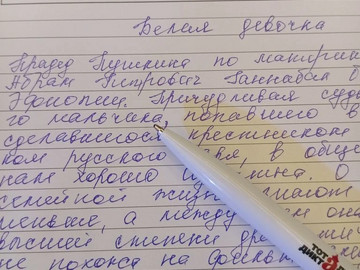 Белая девочка
Прадед Пушкина по матери
Абрам Петрович Ганнибал
Эфиопии. Причудливая судь
го мальчика, попавшего в
сделавшегося крестником
ком русского, в обще
нам хорошо. О
семейной жизни
меньше, а между он
высшей степени
не похожа на
ТОТ
ДИКТ